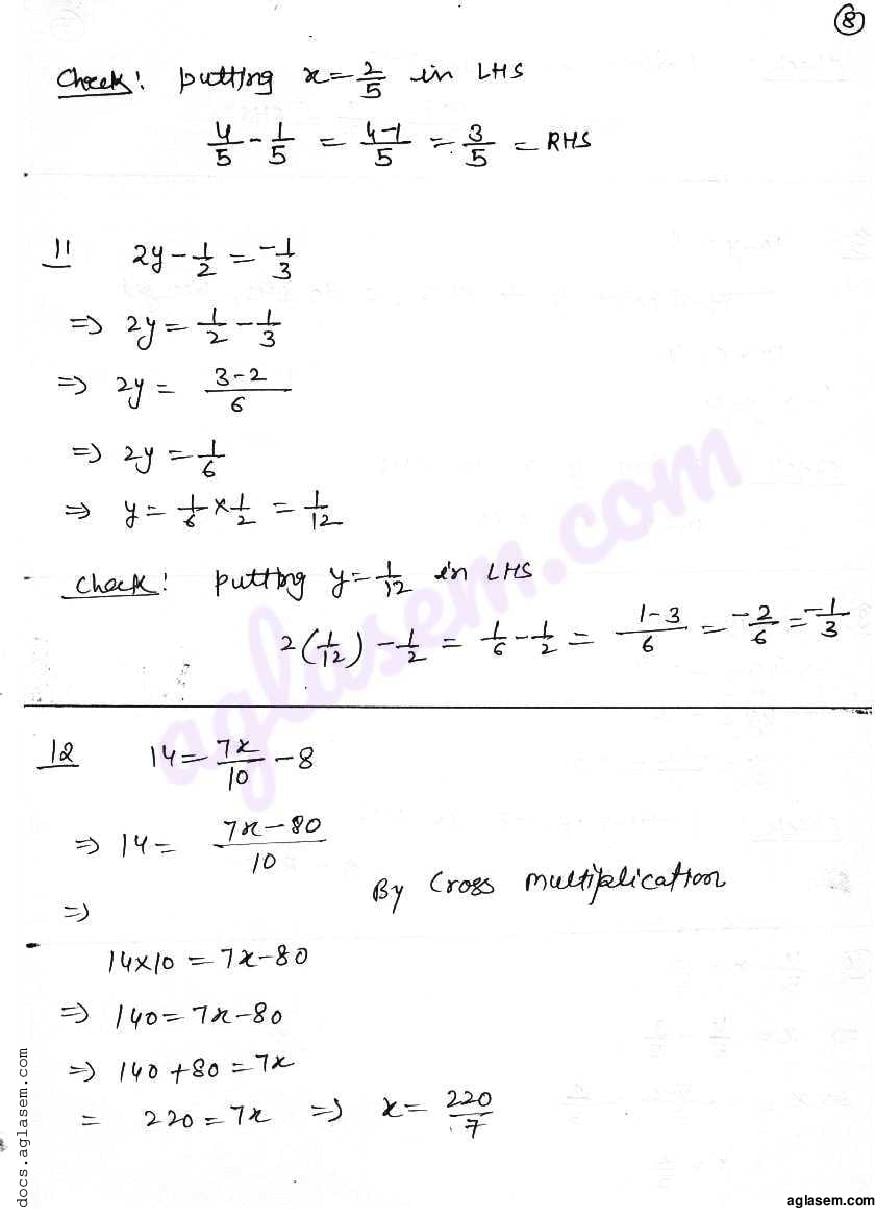 8
Check! putting x=2/5 in LHS
4/5 - 1/5 = 4-1/5 = 3/5 = RHS
11 2y - 1/2 = -1/3
⇒ 2y = 1/2 - 1/3
⇒ 2y = 3-2/6
⇒ 2y = 1/6
⇒ y = 1/6 × 1/2 = 1/12
Check! putting y = 1/12 in LHS
2(1/12) - 1/2 = 1/6 - 1/2 = 1-3/6 = -2/6 = -1/3
12 14 = 7x/10 - 8
⇒ 14 = 7x-80/10
By Cross multiplication
⇒
14×10 = 7x-80
⇒ 140 = 7x-80
⇒ 140+80 = 7x
= 220 = 7x ⇒ x = 220/7
aglasem.com
docs.aglasem.com
aglasem.com